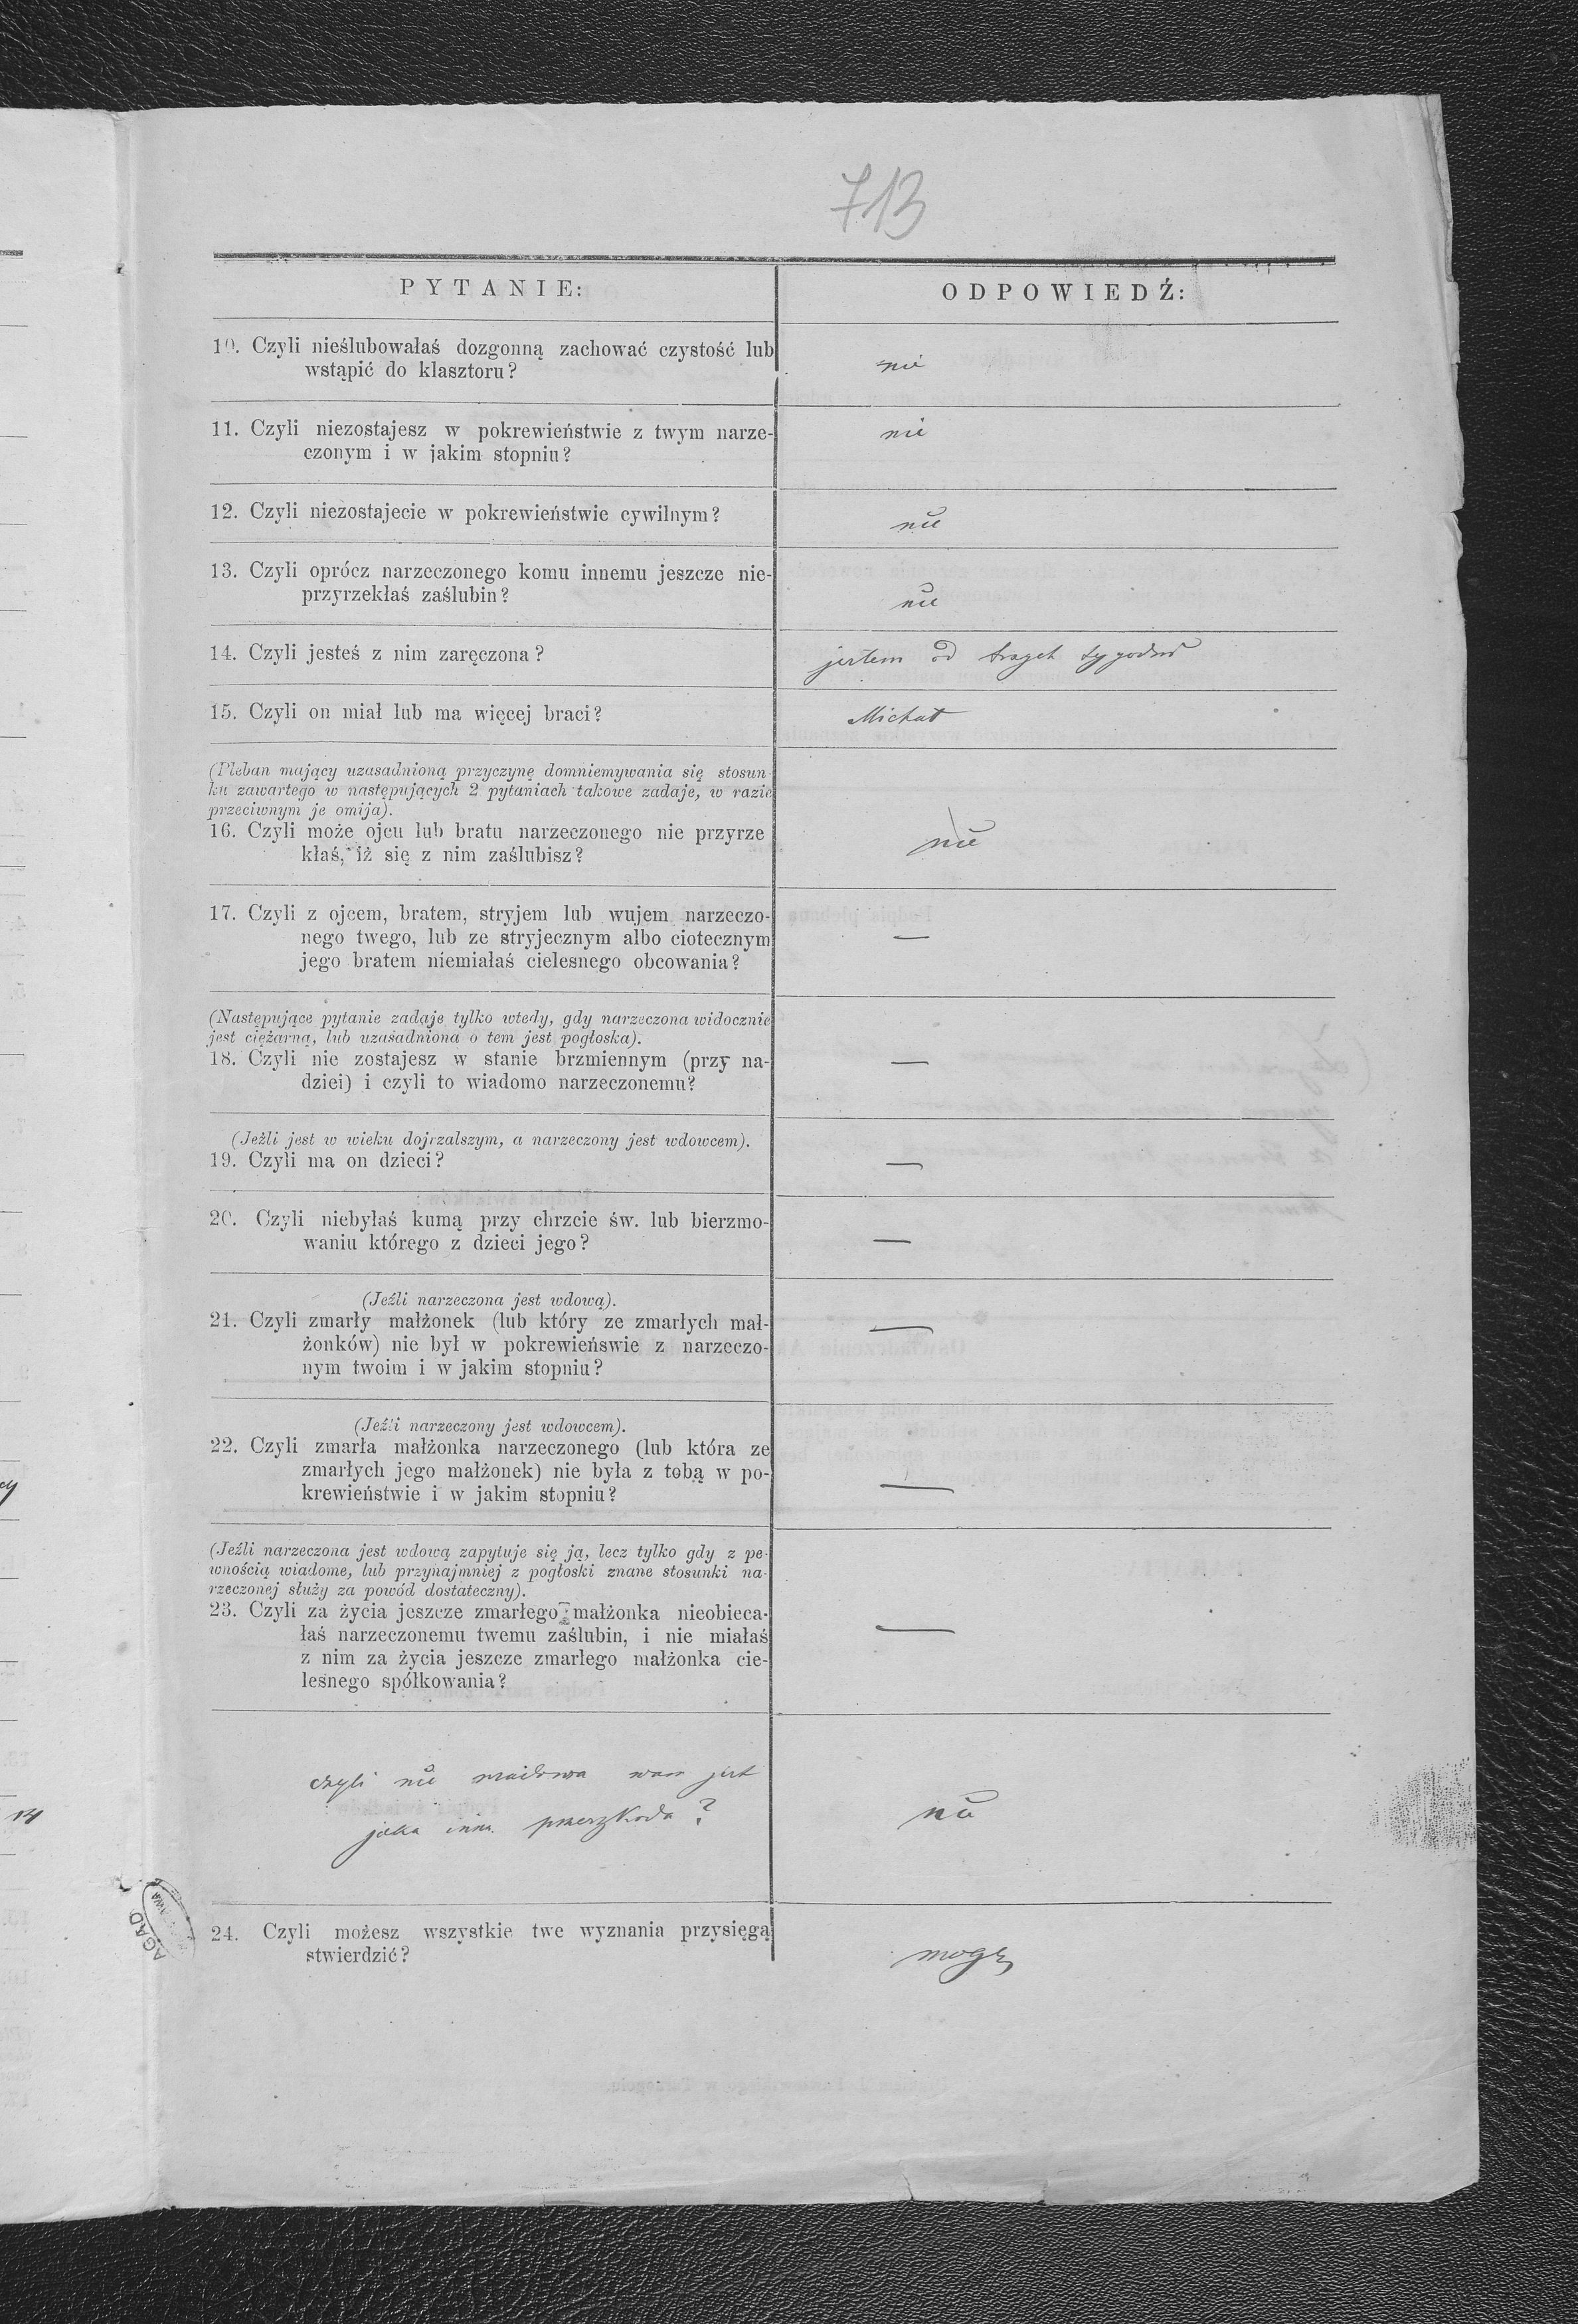 713
PYTANIE:
ODPOWIEDŹ:
10. Czyli nieślubowałaś dozgonną zachować czystość lub
wstąpić do klasztoru?
nie
11. Czyli niezostajesz w pokrewieństwie z twym narze-
czonym i w jakim stopniu?
nie
12. Czyli niezostajecie w pokrewieństwie cywilnym?
nie
13. Czyli oprócz narzeczonego komu innemu jeszcze nie-
przyrzekłaś zaślubin?
nie
14. Czyli jesteś z nim zaręczona?
jestem od trzech tygodni
15. Czyli on miał lub ma więcej braci?
Michał
(Pleban mający uzasadnioną przyczynę domniemywania się stosun-
ku zawartego w następujących 2 pytaniach takowe zadaje, w razie
przeciwnym je omija).
16. Czyli może ojcu lub bratu narzeczonego nie przyrze
kłaś, iż się z nim zaślubisz?
nie
17. Czyli z ojcem, bratem, stryjem lub wujem narzeczo-
nego twego, lub ze stryjecznym albo ciotecznym
jego bratem niemiałaś cielesnego obcowania?
—
(Następujące pytanie zadaje tylko wtedy, gdy narzeczona widocznie
jest ciężarną, lub uzasadniona o tem jest pogłoska).
18. Czyli nie zostajesz w stanie brzmiennym (przy na-
dziei) i czyli to wiadomo narzeczonemu?
—
(Jeżli jest w wieku dojrzalszym, a narzeczony jest wdowcem).
19. Czyli ma on dzieci?
—
20. Czyli niebyłaś kumą przy chrzcie św. lub bierzmo-
waniu którego z dzieci jego?
—
(Jeźli narzeczona jest wdową).
21. Czyli zmarły małżonek (lub który ze zmarłych mał-
żonków) nie był w pokrewieńswie z narzeczo-
nym twoim i w jakim stopniu?
—
(Jeźli narzeczony jest wdowcem).
22. Czyli zmarła małżonka narzeczonego (lub która ze
zmarłych jego małżonek) nie była z tobą w po-
krewieństwie i w jakim stopniu?
—
(Jeźli narzeczona jest wdową zapytuje się ją, lecz tylko gdy z pe-
wnością wiadome, lub przynajmniej z pogłoski znane stosunki na-
rzeczonej służy za powód dostateczny).
23. Czyli za życia jeszcze zmarłego małżonka nieobieca-
łaś narzeczonemu twemu zaślubin, i nie miałaś
z nim za życia jeszcze zmarłego małżonka cie-
lesnego spółkowania?
—
czyli nie wiadoma wam jest
jaka inna przeszkoda?
nie
24. Czyli możesz wszystkie twe wyznania przysięgą
stwierdzić?
mogę
AGAD